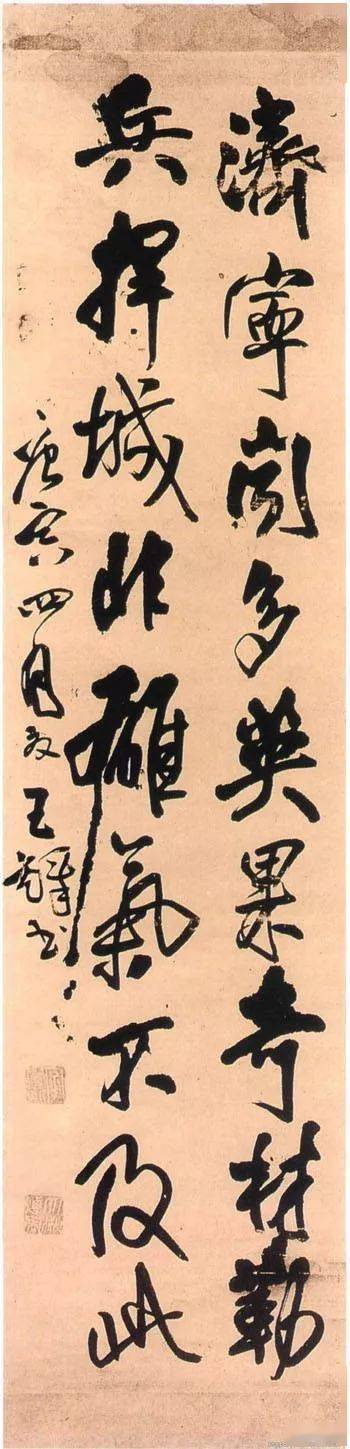 濟寧間多英果奇材勒
兵捍城非雄氣不及此
庚寅四月夜王鐸書